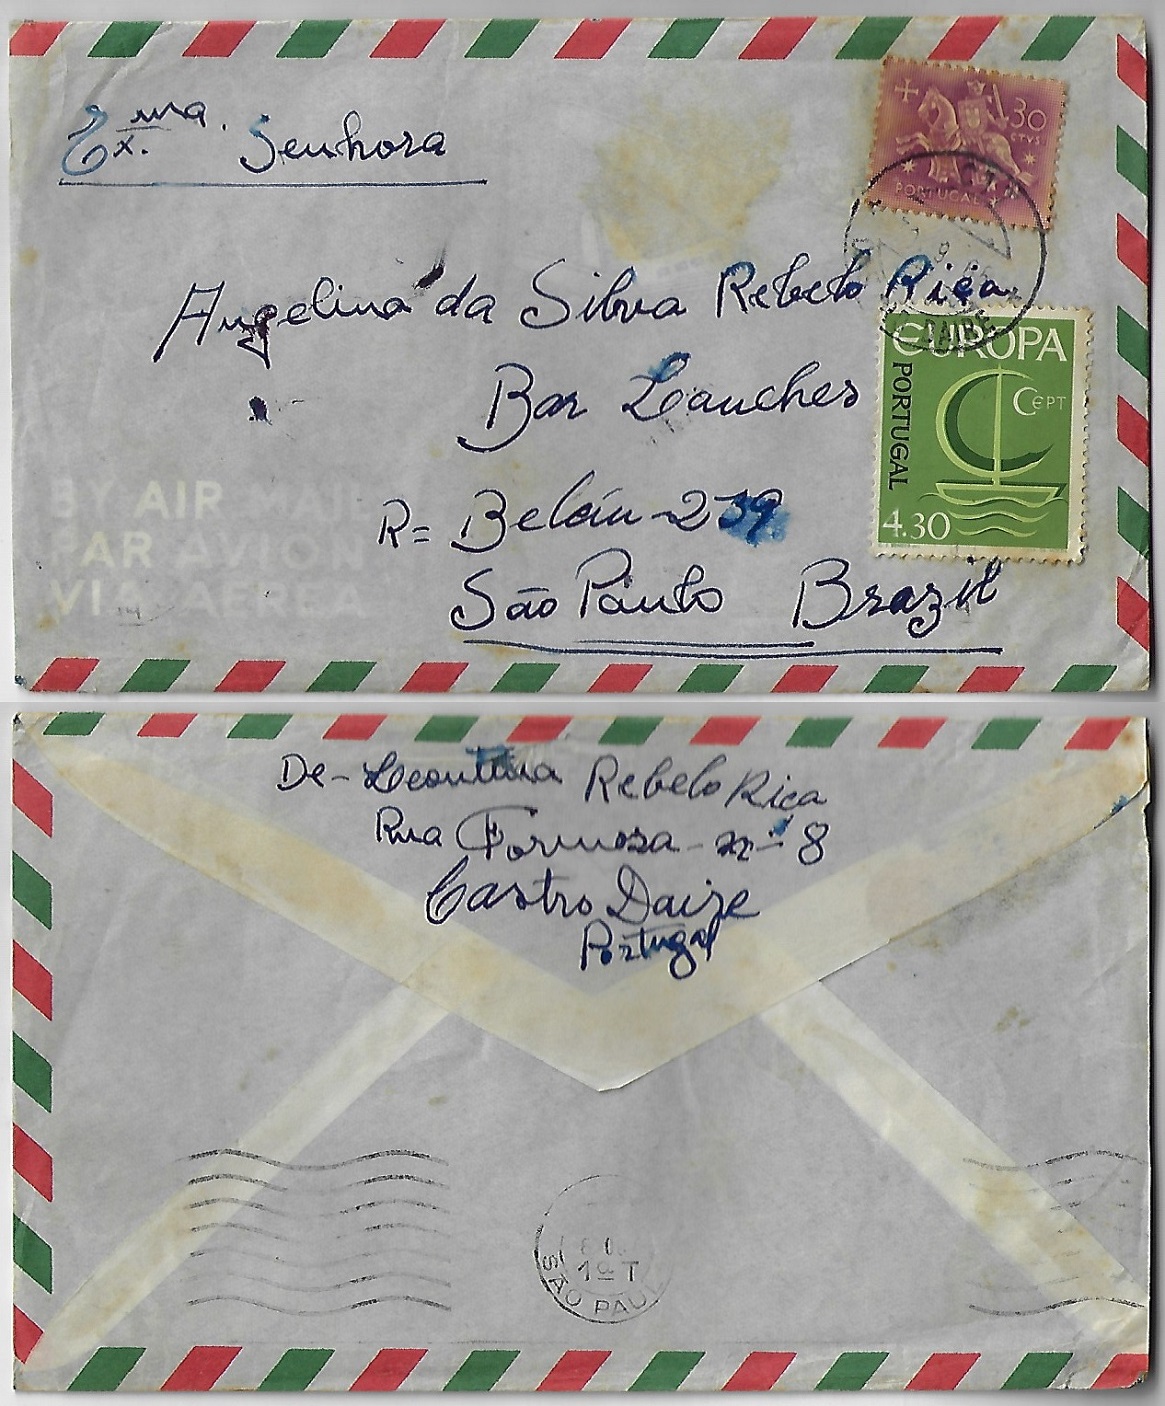 Exma. Senhora
30
CTVS
PORTUGAL
Angelina da Silva Rebelo Rica
9
DAIRE
EUROPA
PORTUGAL
CEPT
4.30
Bar Lanches
R= Belém-239
São Paulo Brazil
BY AIR MAIL
PAR AVION
VIA AEREA
De-Leontina Rebelo Rica
Rua Formosa-nº-8
Castro Daire
Portugal
1ª T
SÃO PAUL